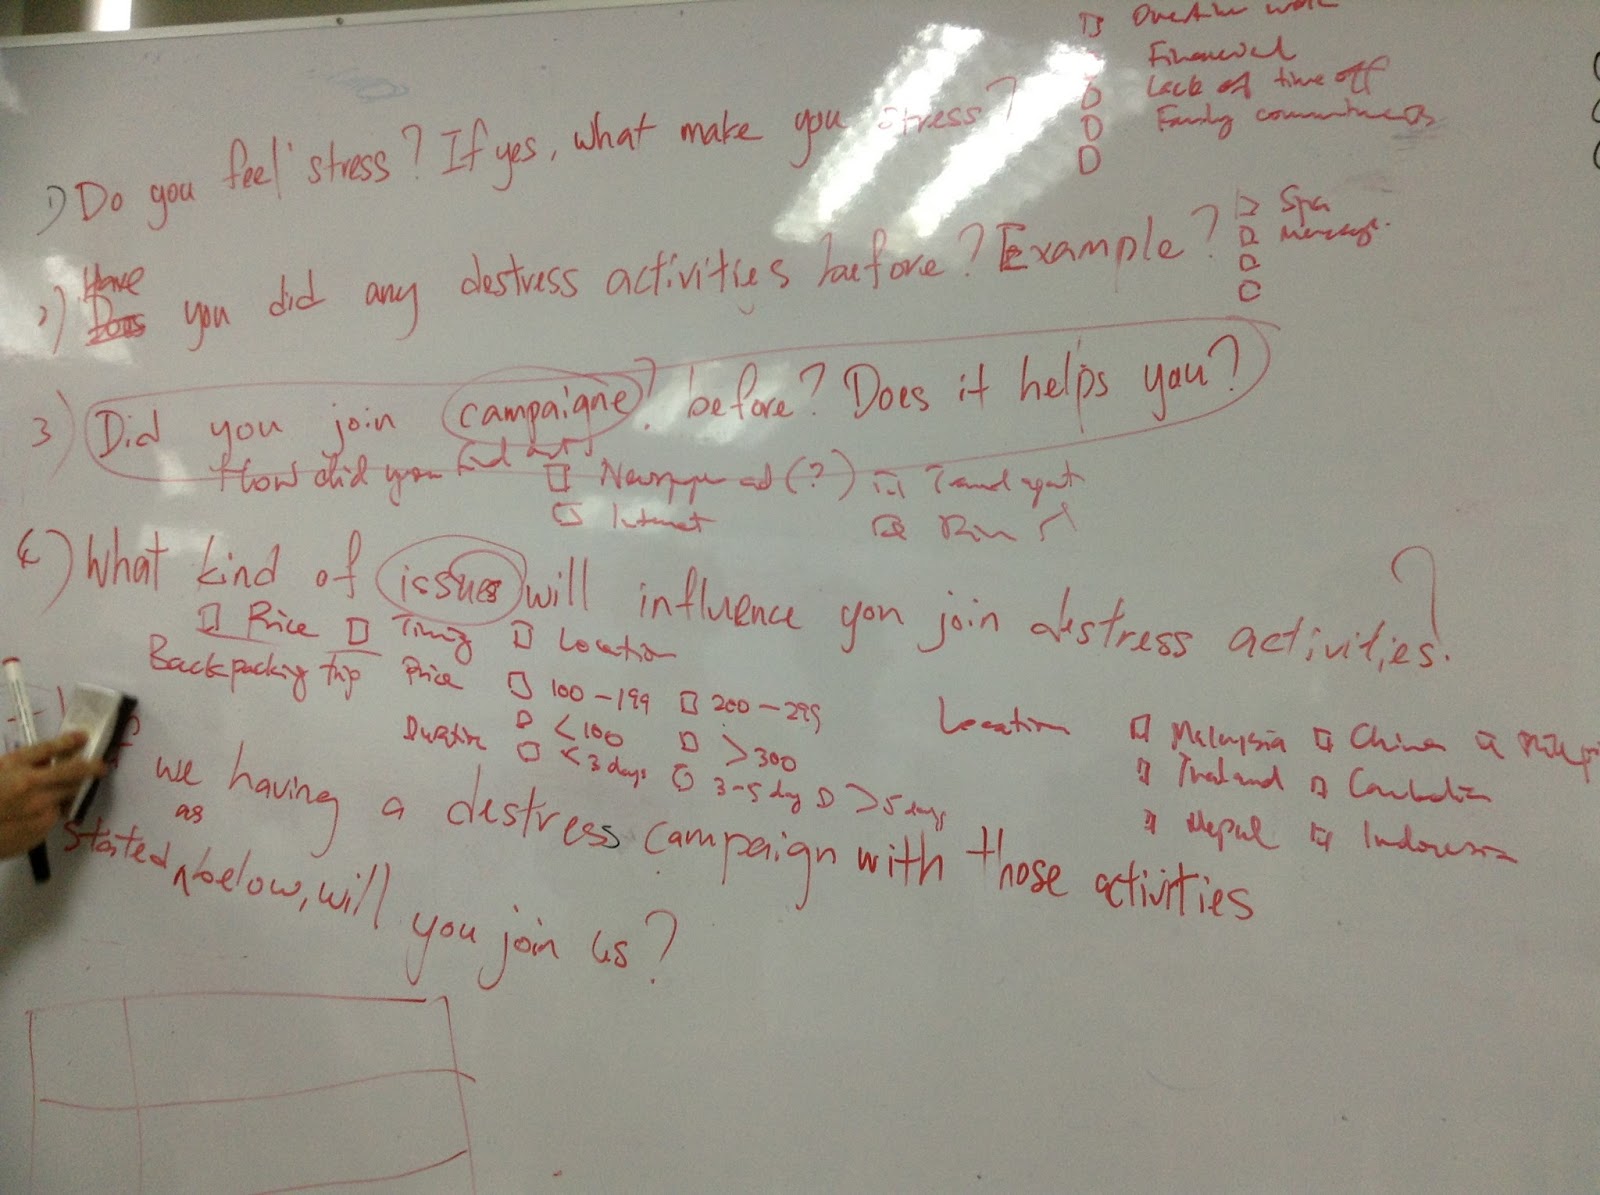 1) Do you feel stress? If yes, what make you stress?
Overtime work
Financial
Lack of time off
Family commitments
2) Have you did any destress activities before? Example?
Spa
3) Did you join campaigne? before? Does it helps you?
How did you find out
Newspaper ad (?)
Travel agent
Internet
4) What kind of issues will influence you join destress activities?
Price Timing Location
Backpacking trip Price 100-199 200-299
<100 >300
Duration <3 days 3-5 day >5 days
Location Malaysia China
Thailand Cambodia
Nepal Indonesia
we having a destress campaign with those activities
stated as below, will you join us?